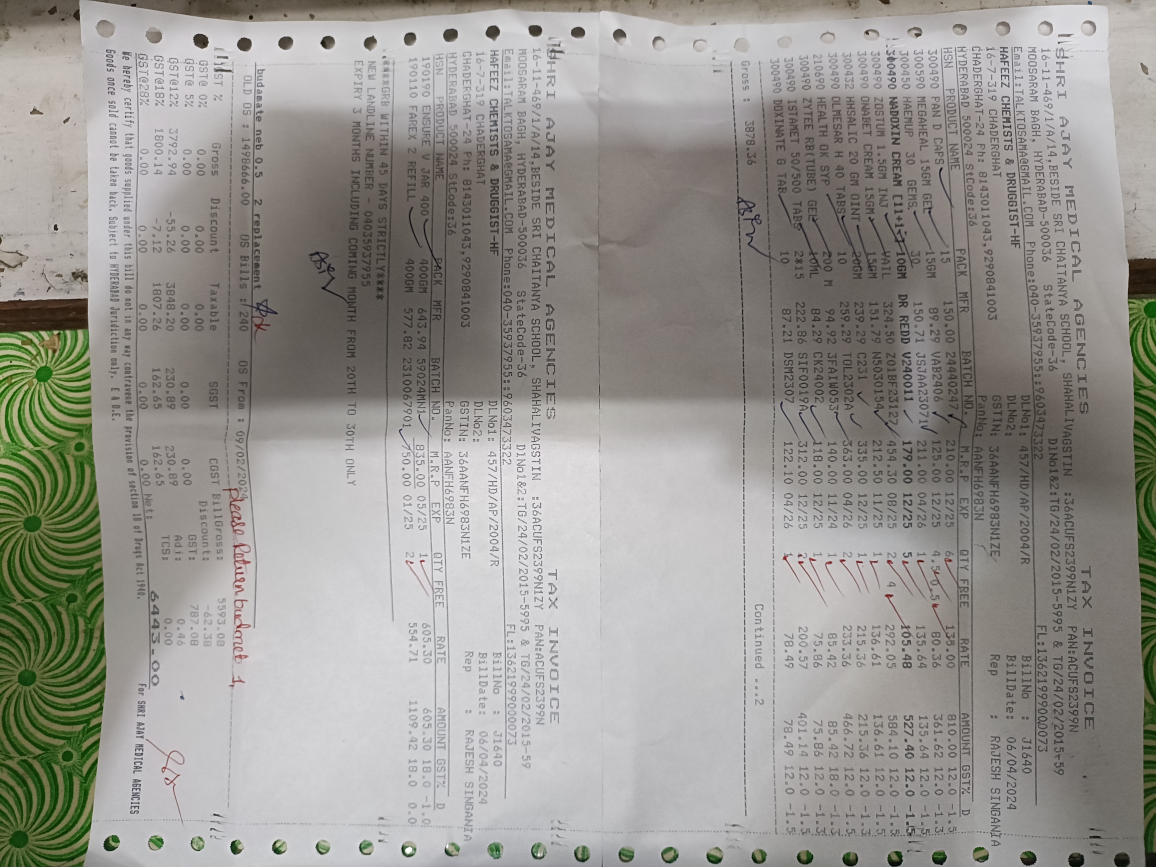 SHRI AJAY MEDICAL AGENCIES TAX INVOICE
16-11-469/1/A/14,BESIDE SRI CHAITANYA SCHOOL, SHAHALIVAGSTIN :36ACUFS2399N1ZY PAN:ACUFS2399N
MOOSARAM BAGH, HYDERABAD-500036 StateCode-36 DlNo1&2:TG/24/02/2015-5995 & TG/24/02/2015-59
Email:TALKTOSAMA@GMAIL.COM Phone:040-35937955::9603473322 FL:13621999000073
HAFEEZ CHEMISTS & DRUGGIST-HF DLNo1: 457/HD/AP/2004/R BillNo : J1640
16-7-319 CHADERGHAT DLNo2: BillDate: 06/04/2024
CHADERGHAT-24 Ph: 8143011043,9290841003 GSTIN: 36AANFH6983N1ZE Rep : RAJESH SINGANIA
HYDERABAD 500024 StCode:36 PanNo: AANFH6983N
HSN PRODUCT NAME PACK MFR BATCH NO. M.R.P EXP QTY FREE RATE AMOUNT GST% D
300490 PAN D CAPS 15 150.00 24440247 210.00 12/25 6 135.00 810.00 12.0 -1.5
300590 MEGAHEAL 15GM GEL 15GM 89.29 VAB2406 125.00 12/25 4.5 0.5 80.36 361.62 12.0 -1.3
HAEMUP 30 GEMS 30 150.71 JSJAA23071 211.00 04/26 1 135.64 135.64 12.0 -1.5
300490 NADOXIN CREAM [11+1=] 10GM DR REDD V240011 179.00 12/25 5 105.48 527.40 12.0 -1.5
300490 ZOSTUM 1.5GM INJ VAIL 324.50 ZO1BF23127 454.30 08/25 2 4 292.05 584.10 12.0 -1.5
300490 ONABET CREAM 15GM 15GM 151.79 NS030154 212.50 11/25 1 136.61 136.61 12.0 -1.5
300432 HHSALIC 20 GM OINT 20GM 239.29 C231 335.00 12/26 1 215.36 215.36 12.0 -1.3
300490 OLMESAR H 40 TABS 10 259.29 TOL2302A 363.00 04/26 2 233.36 466.72 12.0 -1.5
210690 HEALTH OK SYP 200 M 94.92 3FA1W053 140.00 11/24 1 85.42 85.42 18.0 -1.3
300490 ZYTEE RB(TUBE) GEL 10ML 84.29 CK24002 118.00 12/25 1 75.86 75.86 12.0 -1.3
300490 ISTAMET 50/500 TABS 2*15 222.86 SIF0019A 312.00 12/25 2 200.57 401.14 12.0 -1.5
300490 DOXINATE G TAB 10 87.21 DSM2307 122.10 04/26 1 78.49 78.49 12.0 -1.5
Gross : 3878.36 Continued ...2
SHRI AJAY MEDICAL AGENCIES TAX INVOICE
16-11-469/1/A/14,BESIDE SRI CHAITANYA SCHOOL, SHAHALIVAGSTIN :36ACUFS2399N1ZY PAN:ACUFS2399N
MOOSARAM BAGH, HYDERABAD-500036 StateCode-36 DlNo1&2:TG/24/02/2015-5995 & TG/24/02/2015-59
Email:TALKTOSAMA@GMAIL.COM Phone:040-35937955::9603473322 FL:13621999000073
HAFEEZ CHEMISTS & DRUGGIST-HF DLNo1: 457/HD/AP/2004/R BillNo : J1640
16-7-319 CHADERGHAT DLNo2: BillDate: 06/04/2024
CHADERGHAT-24 Ph: 8143011043,9290841003 GSTIN: 36AANFH6983N1ZE Rep : RAJESH SINGANIA
HYDERABAD 500024 StCode:36 PanNo: AANFH6983N
HSN PRODUCT NAME PACK MFR BATCH NO. M.R.P EXP QTY FREE RATE AMOUNT GST% D
190190 ENSURE V JAR 400 400GM 643.94 59024MN1 835.00 05/25 1 605.30 605.30 18.0 -1.0
190110 FAREX 2 REFILL 400GM 577.82 2310067901 750.00 01/25 2 554.71 1109.42 18.0 0.0
****GRB WITHIN 45 DAYS STRICTLY****
NEW LANDLINE NUMBER - 04035937955
EXPIRY 3 MONTHS INCLUDING COMING MONTH FROM 20TH TO 30TH ONLY
budamate neb 0.5 2 replacement
OLD OS : 1498666.00 OS Bills :/240 OS From : 09/02/2024
please Return budmet 1,
GST % Gross Discount Taxable SGST CGST BillGross: 5593.08
GST@ 0% 0.00 0.00 0.00 Discount: -62.38
GST@ 5% 0.00 0.00 0.00 0.00 0.00 GST: 787.08
GST@12% 3792.94 -55.26 3848.20 230.89 230.89 Adj: 0.46
GST@18% 1800.14 -7.12 1807.26 162.65 162.65 TCS: 0.00
GST@28% 0.00 0.00 0.00 0.00 0.00 Net: 6443.00
We hereby certify that goods supplied under this bill do not in any way contravene the provision of section 18 of Drugs Act 1940.
Goods once sold cannot be taken back. Subject to HYDERABAD Jurisdiction only. E & O.E. For SHRI AJAY MEDICAL AGENCIES